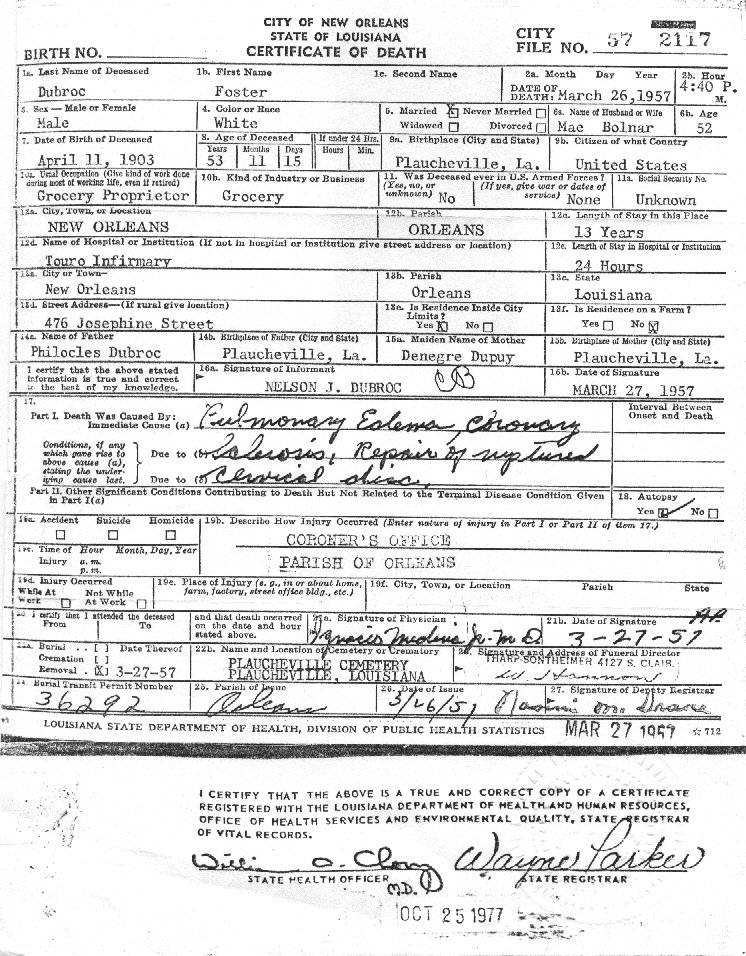 CITY OF NEW ORLEANS
STATE OF LOUISIANA
CERTIFICATE OF DEATH
BIRTH NO.
CITY FILE NO. 57 2117
1a. Last Name of Deceased 1b. First Name 1c. Second Name 2a. Month Day Year 2b. Hour
Dubroc Foster DATE OF DEATH: March 26,1957 4:40 P. M.
3. Sex — Male or Female 4. Color or Race 5. Married X Never Married 6a. Name of Husband or Wife 6b. Age
Male White Widowed Divorced Mae Bolnar 52
7. Date of Birth of Deceased 8. Age of Deceased If under 24 Hrs. 9a. Birthplace (City and State) 9b. Citizen of what Country
Years Months Days Hours Min.
April 11, 1903 53 11 15 Plaucheville, La. United States
10a. Usual Occupation (Give kind of work done during most of working life, even if retired) 10b. Kind of Industry or Business 11. Was Deceased ever in U.S. Armed Forces? 11a. Social Security No.
(Yes, no, or unknown) No (If yes, give war or dates of service) None Unknown
Grocery Proprietor Grocery
12a. City, Town, or Location 12b. Parish 12c. Length of Stay in this Place
NEW ORLEANS ORLEANS 13 Years
12d. Name of Hospital or Institution (If not in hospital or institution give street address or location) 12e. Length of Stay in Hospital or Institution
Touro Infirmary 24 Hours
13a. City or Town— 13b. Parish 13c. State
New Orleans Orleans Louisiana
13d. Street Address—(If rural give location) 13e. Is Residence Inside City Limits? 13f. Is Residence on a Farm?
476 Josephine Street Yes X No Yes No X
14a. Name of Father 14b. Birthplace of Father (City and State) 15a. Maiden Name of Mother 15b. Birthplace of Mother (City and State)
Philocles Dubroc Plaucheville, La. Denegre Dupuy Plaucheville, La.
I certify that the above stated information is true and correct to the best of my knowledge. 16a. Signature of Informant 16b. Date of Signature
NELSON J. DUBROC MARCH 27, 1957
17. Interval Between Onset and Death
Part I. Death Was Caused By:
Immediate Cause (a) Pulmonary Edema, Coronary
Conditions, if any which gave rise to above cause (a), stating the underlying cause last.
Due to (b) Sclerosis, Repair of ruptured
Due to (c) Cervical disc.
Part II. Other Significant Conditions Contributing to Death But Not Related to the Terminal Disease Condition Given in Part I(a) 18. Autopsy
Yes No
19a. Accident Suicide Homicide 19b. Describe How Injury Occurred (Enter nature of injury in Part I or Part II of item 17.)
CORONER'S OFFICE
19c. Time of Injury Hour Month, Day, Year a.m. p.m.
PARISH OF ORLEANS
19d. Injury Occurred 19e. Place of Injury (e. g., in or about home, farm, factory, street office bldg., etc.) 19f. City, Town, or Location Parish State
While At Work Not While At Work
20. I certify that I attended the deceased From To and that death occurred on the date and hour stated above. 21a. Signature of Physician 21b. Date of Signature
Medina Jr. M.D. 3-27-57
22a. Burial Date Thereof 22b. Name and Location of Cemetery or Crematory 23. Signature and Address of Funeral Director
Cremation [ ] PLAUCHEVILLE CEMETERY THARP SONTHEIMER 4127 S. CLAIB.
Removal [X] 3-27-57 PLAUCHEVILLE, LOUISIANA
24. Burial Transit Permit Number 25. Parish of Issue 26. Date of Issue 27. Signature of Deputy Registrar
36292 Orleans 3/26/57
LOUISIANA STATE DEPARTMENT OF HEALTH, DIVISION OF PUBLIC HEALTH STATISTICS MAR 27 1957 ☆712
I CERTIFY THAT THE ABOVE IS A TRUE AND CORRECT COPY OF A CERTIFICATE
REGISTERED WITH THE LOUISIANA DEPARTMENT OF HEALTH AND HUMAN RESOURCES,
OFFICE OF HEALTH SERVICES AND ENVIRONMENTAL QUALITY, STATE REGISTRAR
OF VITAL RECORDS.
Wayne Parker
STATE HEALTH OFFICER M.D. STATE REGISTRAR
OCT 25 1977